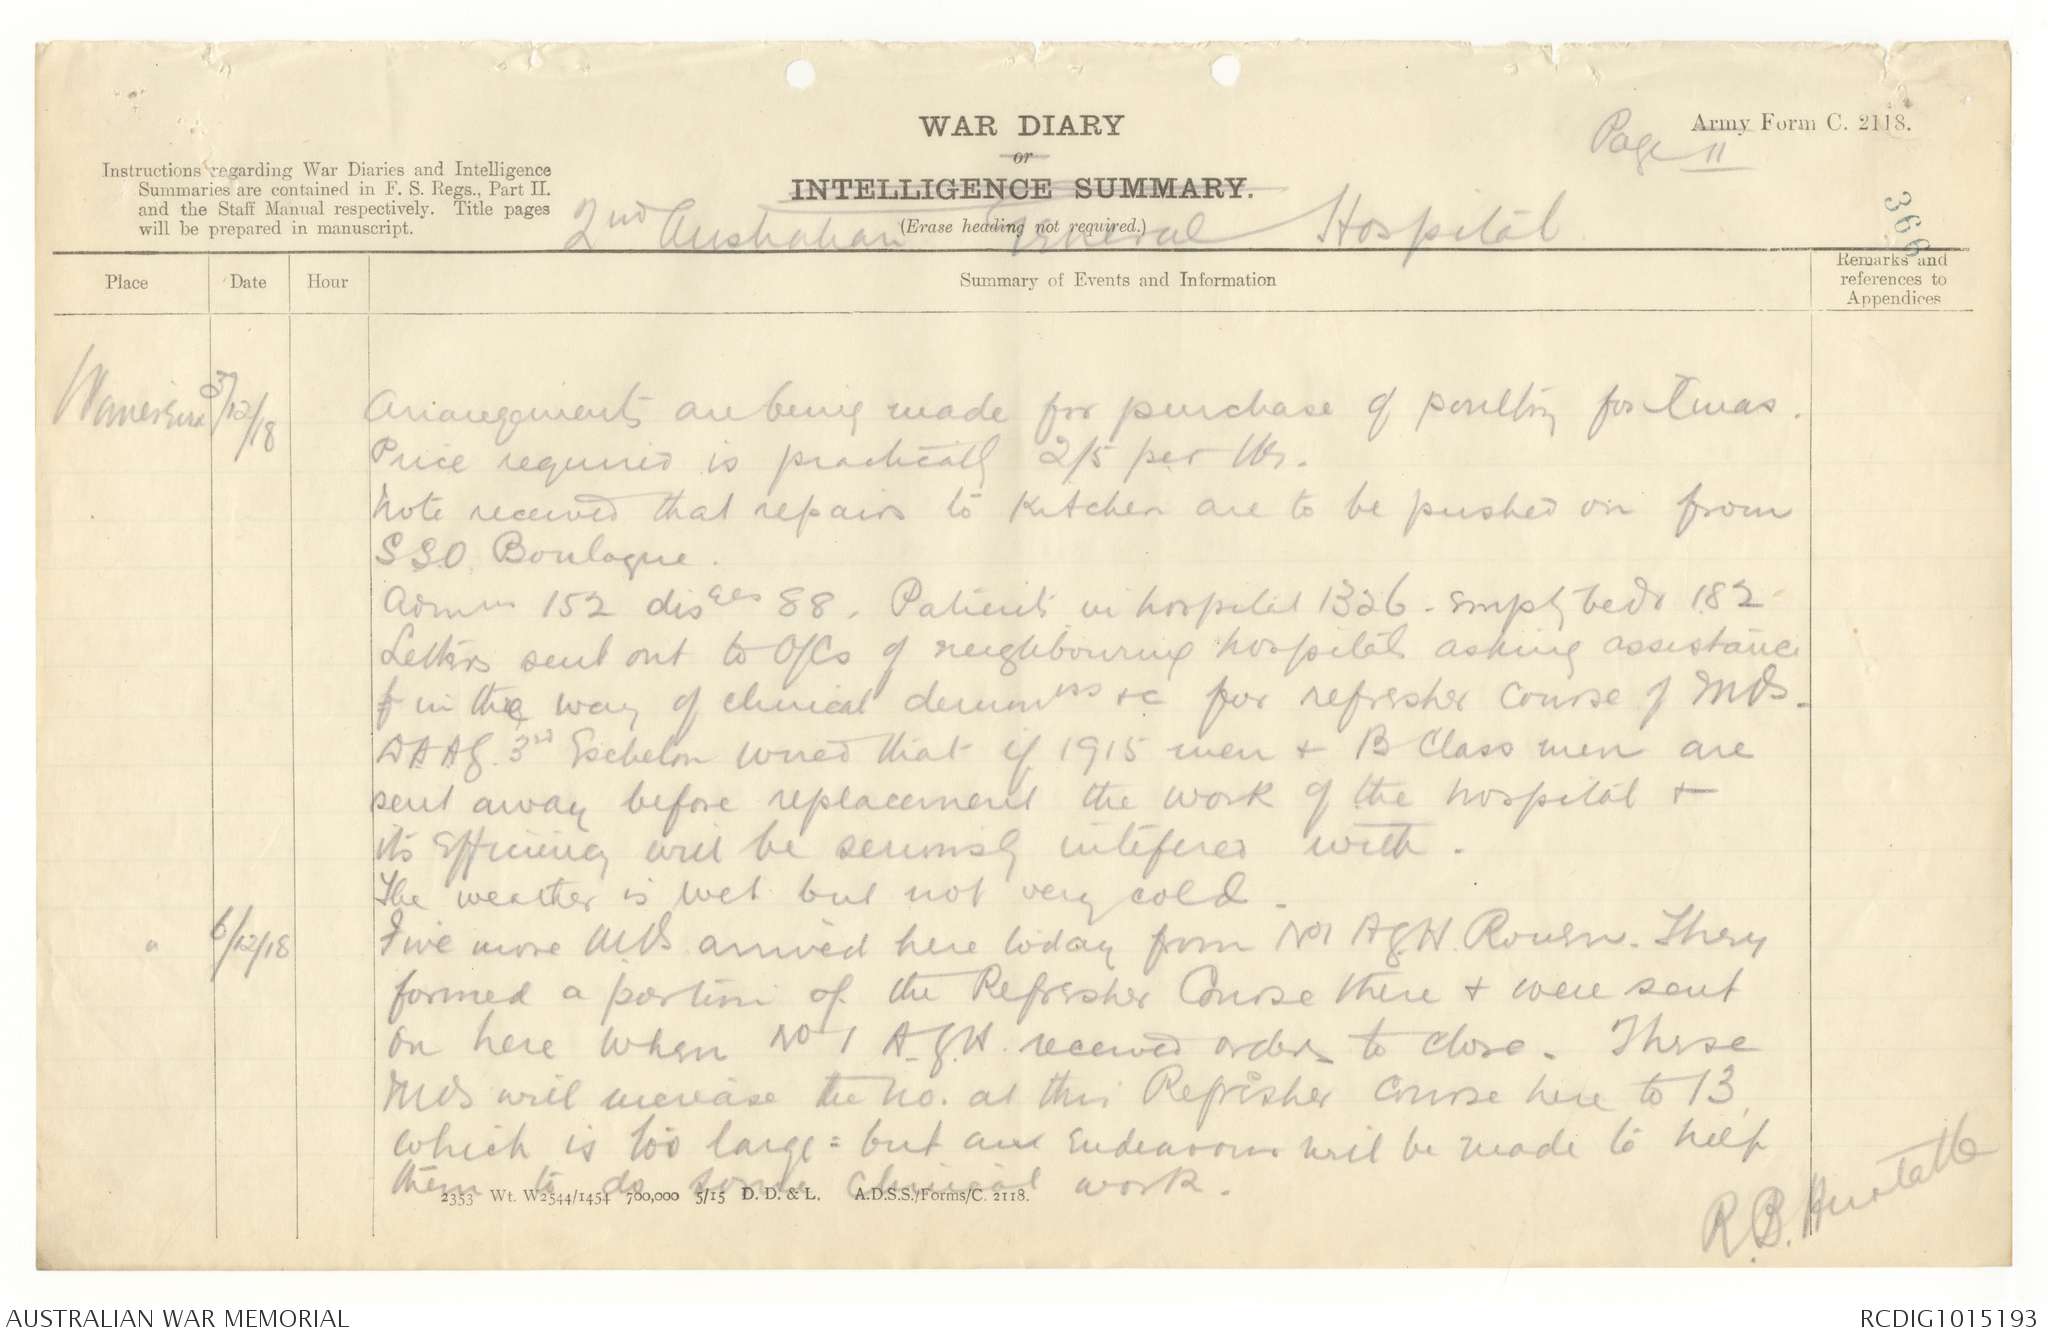 WAR DIARY
or
INTELLIGENCE SUMMARY.
(Erase heading not required.)
Army Form C. 2118.
Page 11
366
Instructions regarding War Diaries and Intelligence
Summaries are contained in F. S. Regs., Part II.
and the Staff Manual respectively. Title pages
will be prepared in manuscript.
2nd Australian General Hospital
Place
Date
Hour
Summary of Events and Information
Remarks and
references to
Appendices
Wimereux
/12/18
Arrangements are being made for purchase of poultry for Xmas.
Price required is practically 2/5 per lb.
Note received that repairs to Kitchen are to be pushed on from
SSO Boulogne.
Admns 152 disges 88. Patients in hospital 1326 - Empty beds 182
Letters sent out to O/Cs of neighbouring hospitals asking assistance
in the way of clinical demonns &c for refresher course of MOs.
DAAG. 3rd Eschelon wired that if 1915 men + B Class men are
sent away before replacement the work of the hospital +
its Efficiency will be seriously intefered with.
The weather is wet but not very cold.
"
6/12/18
Five more MOs arrived here today from No1 AGH Rouen. They
formed a portion of the Refresher Course there + were sent
on here when No 1 A.G.H. received orders to close. These
MOs will increase the no. at this Refresher Course here to 13,
which is too large = but an Endeavour will be made to help
them to do some clinical work.
2353 Wt. W2544/1454 700,000 5/15 D. D. & L. A.D.S.S./Forms/C. 2118.
R.B. Huxtable
AUSTRALIAN WAR MEMORIAL
RCDIG1015193